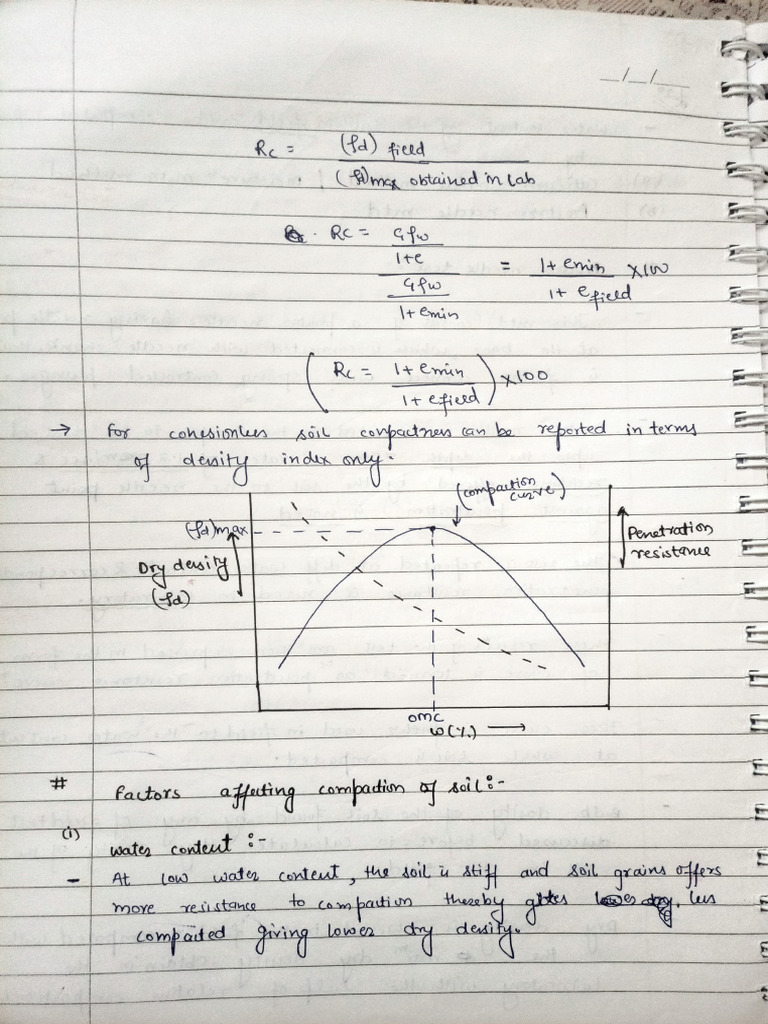 _/_/_
Rc = (ρd) field
(ρd)max obtained in Lab
Rc = Gρw
1+e
Gρw
1+emin
= 1+ emin ×100
1+ efield
(Rc = 1+emin) ×100
1+efield
→ For cohesionless soil compactness can be reported in terms
of density index only.
(compaction
curve)
(ρd)max
Penetration
resistance
Dry density
(ρd)
omc
w(%) →
# Factors affecting compaction of soil:-
(i) water content :-
- At low water content, the soil is stiff and soil grains offers
more resistance to compaction thereby less
compacted giving lower dry density.